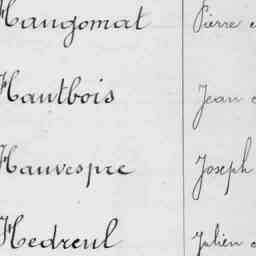 Haugomat Pierre
Hautbois Jean
Hauvespre Joseph
Hedreul Julien